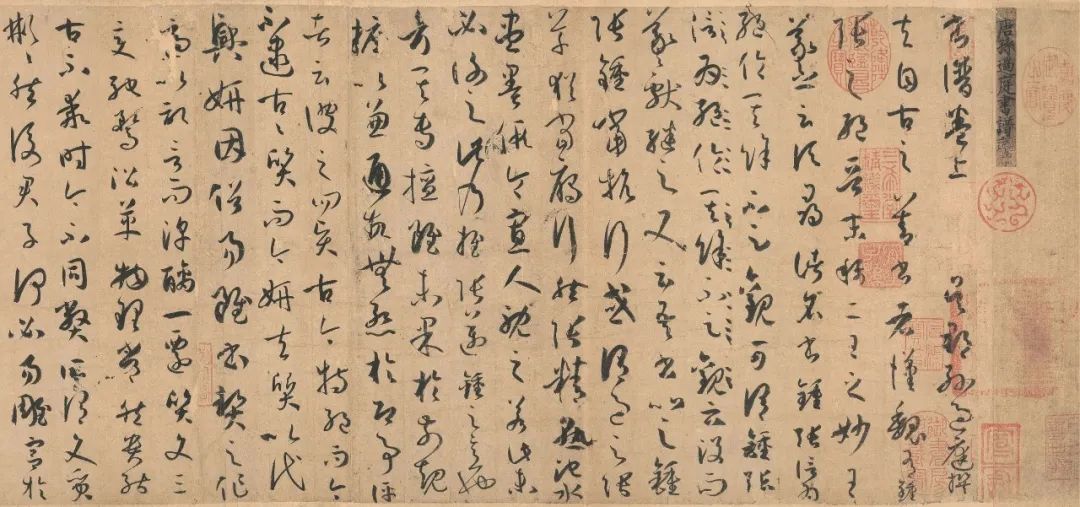 唐孫過庭書譜序
書譜卷上 吳郡孫過庭撰
夫自古之善書者漢魏有鍾
張之絕晉末稱二王之妙王
羲之云頃尋諸名書鍾張信為
絕倫其餘不足觀可謂鍾張
信為絕倫其餘不足觀云沒而
羲獻繼之又云吾書比之鍾
張鍾當抗行或謂過之張
草猶當鴈行然張精熟池水
盡墨假令寡人耽之若此未
必謝之此乃推張邁鍾之意也
考其專擅雖未果於前規
摭以兼通故無慙於即事評
者云彼之四賢古今特絕而今
不逮古古質而今妍夫質以代
興妍因俗易雖書契之作
適以記言而淳醨一遷質文三
變馳騖沿革物理常然貴能
古不乖時今不同弊所謂文質
彬彬然後君子何必易雕宮於